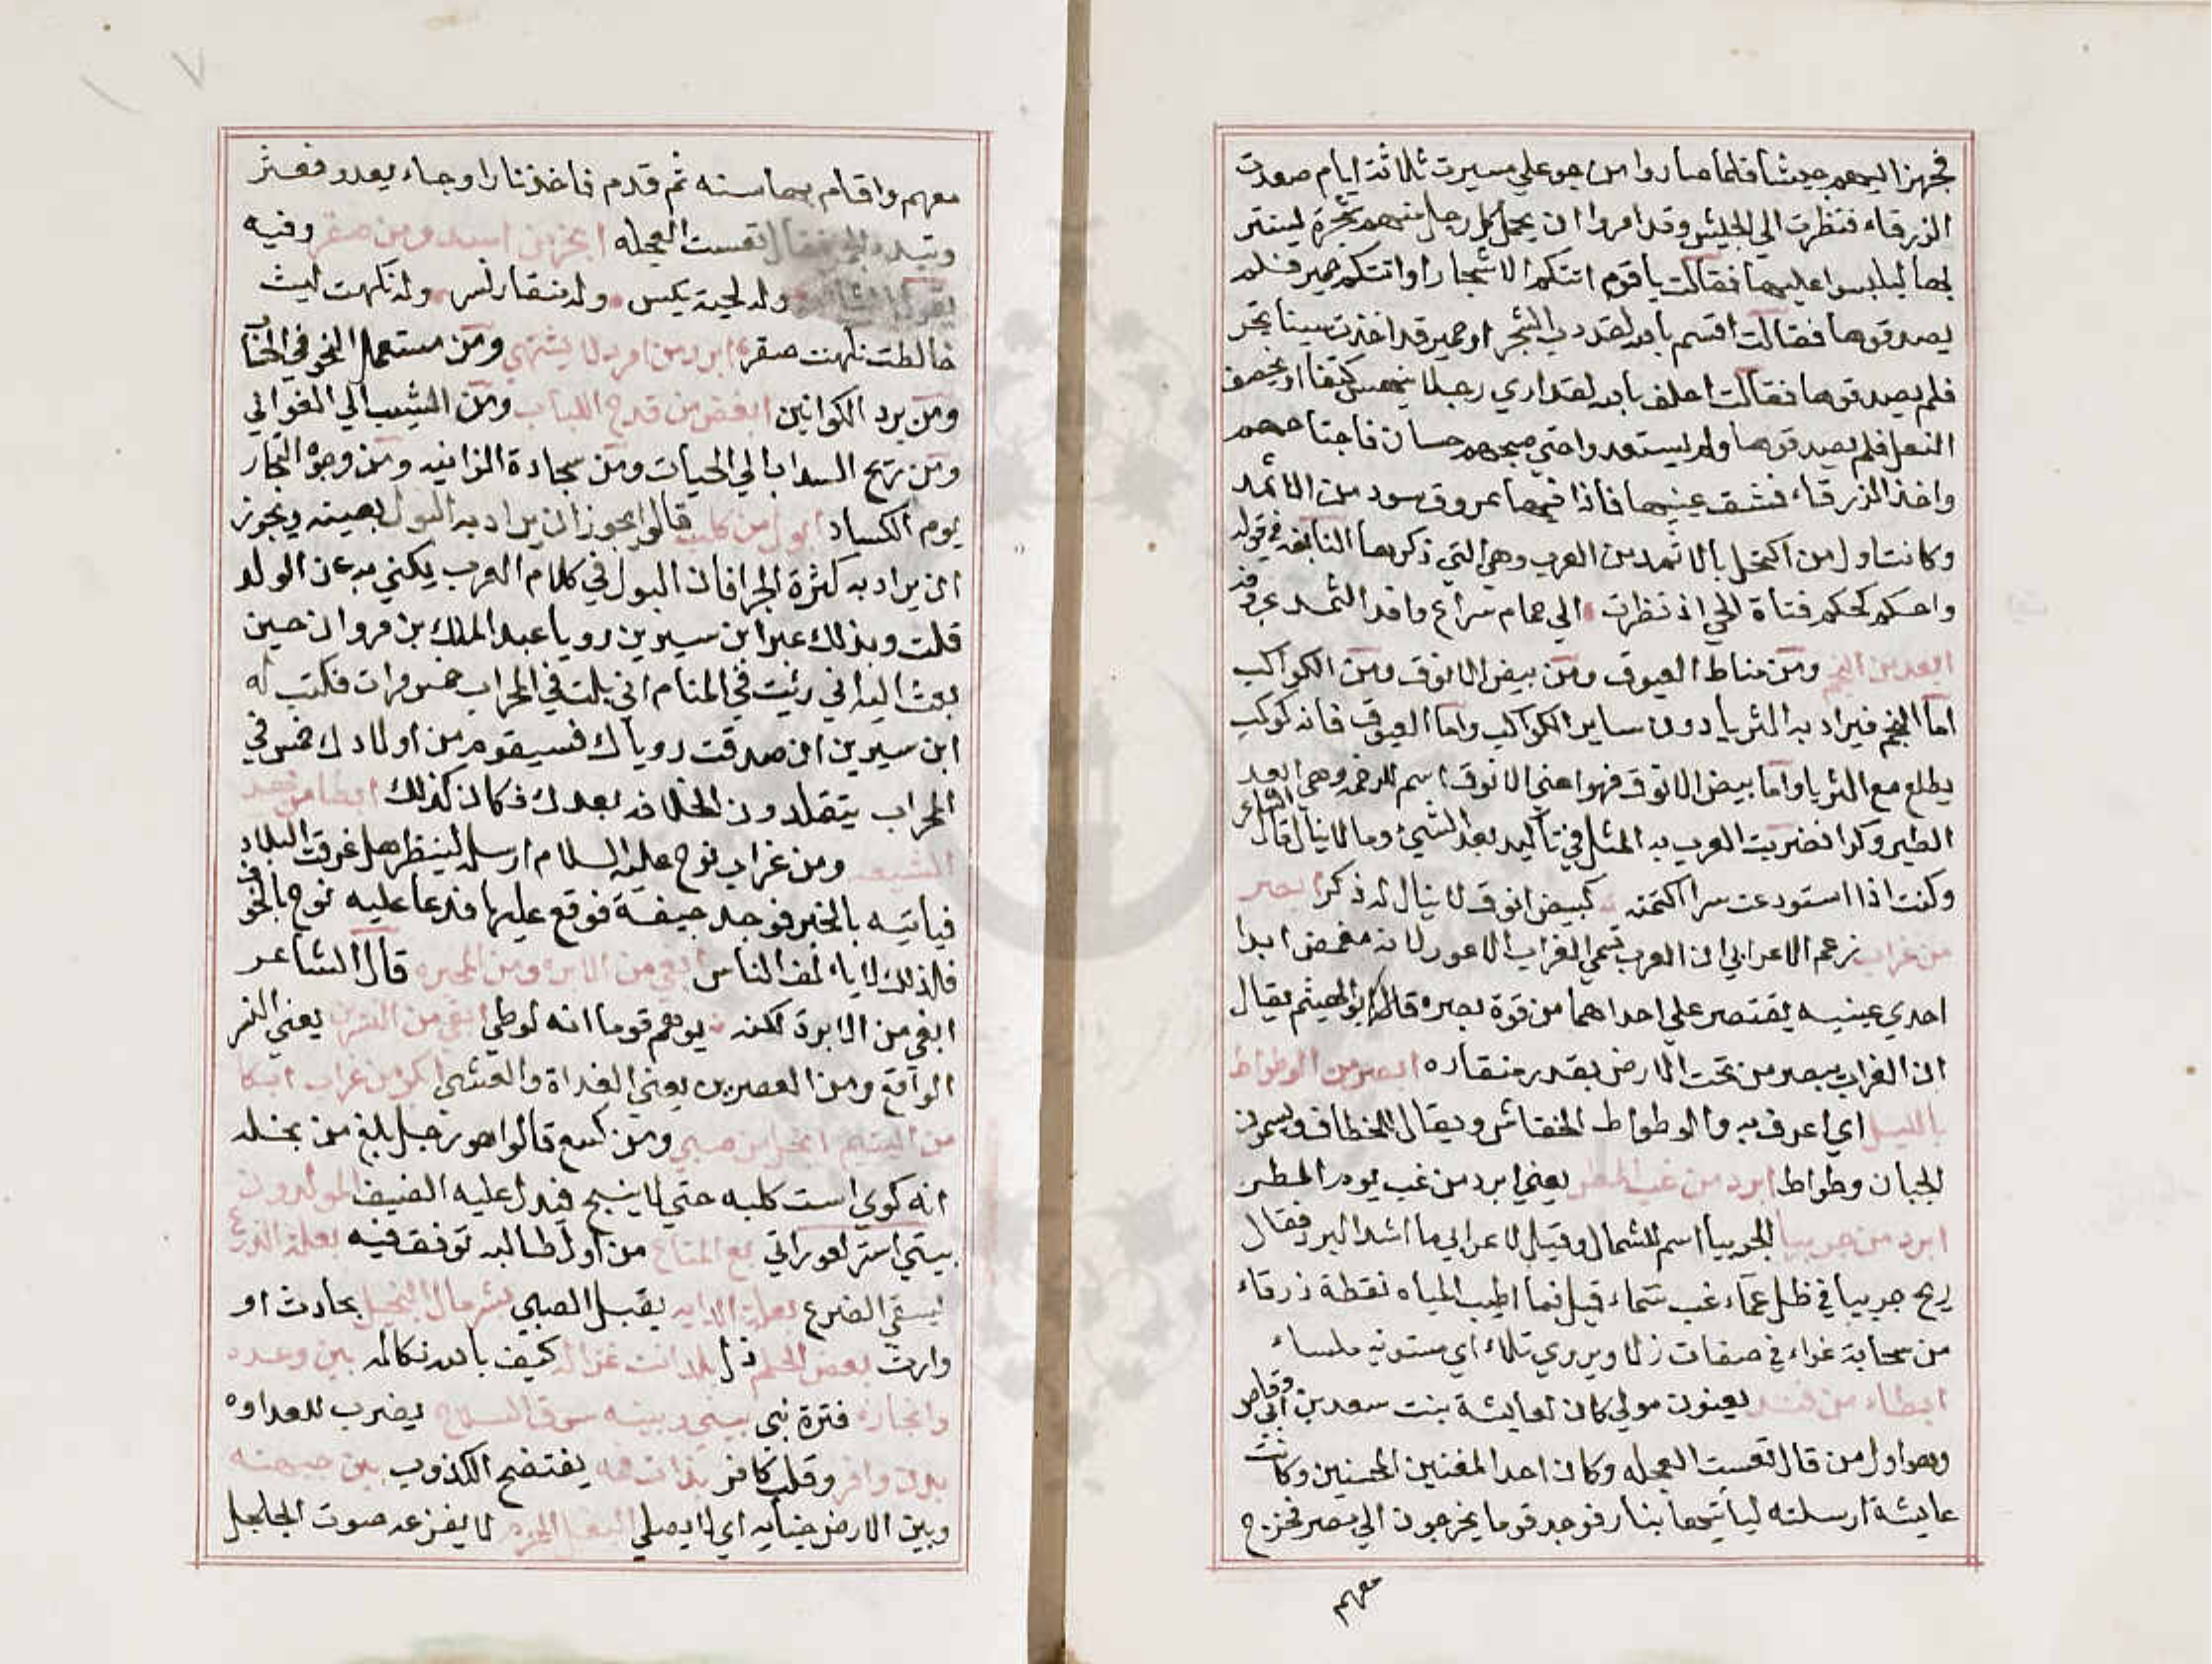 فجهز اليهم جيشا فلما صاروا من جو علي مسيرت ثلاثة ايام صعدت
الزرقاء فنظرت الي الجيش وقد امروا ان يحمل كل رجل منهم شجرة ليستتر
بها ليلبسوا عليها فقالت ياقوم اتتكم الاشجار او اتتكم حمير فلم
يصدقوها فقالت اقسم بالله لقد دب الشجر او حمير قد اخذت شيئا يجر
فلم يصدقوها فقالت احلف بالله لقد اري رجلا ينهس كتفا او يخصف
النعل فلم يصدقوها ولم يستعدوا حتي صبحهم حسان فاجتاحهم
واخذ الزرقاء فشق عينيها فاذا فيها عروق سود من الاثمد
وكانت اول من اكتحل بالاثمد من العرب وهي التي ذكرها النابغه في قوله
واحكم كحكم فتاة الحي اذ نظرت الي حمام سراع واقد الثمد
ابعد من النجم ومن مناط العيوق ومن بيض الانوق ومن الكواكب
اما النجم فيراد به الثريا دون ساير الكواكب واما العيوق فانه كوكب
يطلع مع الثريا واما بيض الانوق فهو اعني الانوق اسم للرخمه وهي ابعد
الطير وكرا فضربت العرب به المثل في تاكيد بعد الشيء وما لا ينال قال الشاعر
وكنت اذا استودعت سرا كتمته كبيض انوق لا ينال له ذكرا ابصر
من غراب زعم الاعرابي ان العرب تسمي الغراب الاعور لانه مغمض ابدا
احدي عينيه يقتصر علي احداهما من قوة بصره قال ابو الهيثم يقال
ان الغراب يبصر من تحت الارض بقدر منقاره ابصر من الوطواط
بالليل اي اعرف به والوطواط الخفاش ويقال الخطاف ويسمون
الجبان وطواط ابرد من غب المطر يعني ابرد من غب يوم المطر
ابرد من جربيا الجربيا اسم للشمال وقيل لاعرابي ما اشد البرد فقال
ريح جربيا في ظل عماء غب سماء قيل فما اطيب المياه نقطة زرقاء
من سحابة غراء في صفات زلا ويروي تلك اي مستويه ملساء
ابطاء من فند يعنون مولي كان لعايشة بنت سعد بن ابي وقاص
وهو اول من قال تعست العجله وكان احد المغنين المحسنين وكانت
عايشة ارسلته لياتيها بنار فوجد قوما يخرجون الي مصر فخرج
معهم
معهم واقام بها سنه ثم قدم فاخذ نارا وجاء يعدو فعثر
وتبدد الجمر فقال تعست العجله ابخر من اسد ومن صقر وفيه
يقول الشاعر وله لحية تيس وله منقار نسر وله نكهت ليث
خالطت نكهت صقر ابرد من امرد لا يشتهي ومن مستعمل النحو في الحساب
ومن برد الكوانين ابغض من قدح اللبلاب ومن الشيب الي الغواني
ومن ريح السداب الي الحيات ومن سجادة الزانيه ومن وجوه التجار
يوم الكساد ابول من كلب قالوا يجوز ان يراد به البول بعينه ويجوز
ان يراد به كثرة الجرا فان البول في كلام العرب يكني به عن الولد
قلت وبذلك عبر ابن سيرين رويا عبد الملك بن مروان حين
بعث اليه اني رئيت في المنام اني بلت في المحراب خمس مرات فكتب له
ابن سيرين ان صدقت روياك فسيقوم من اولادك خمس في
المحراب يتقلدون الخلافه بعدك فكان كذلك ابطا من
ومن غراب نوح عليه السلام ارسله لينظر هل غرقت البلاد
فياتيه بالخبر فوجد جيفة فوقع عليها فدعا عليه نوح بالخوف
فلذلك لا يالف الناس ابغي من الابره ومن المحبره قال الشاعر
ابغي من الابرة لكنه يوهم قوما انه لوطي ابقي من النسرين يعني النسر
الواقع ومن العصرين يعني الغداة والعشي ابكر من غراب ابكا
من اليتيم ابخل من صبي ومن كسع قالوا هو رجل بلغ من بخله
انه كوي است كلبه حتي لا ينبح فيدل عليه الضيف المولدون
بيتي استر لعوراتي بع المتاع من اول طالبه توفق فيه بعلة الزرع
يسقي القرع بعلة الدايه يقبل الصبي بشر مال البخيل بحادث او
وارث بعض الحلم ذل بلد انت غزاله كيف بالله نكاله بين وعده
وانجازه فترة نبي بيني وبينه سوق السلاح يضرب للعداوه
بدن وافر وقلب كافر بذات فمه يفتضح الكذوب بين جبهته
وبين الارض جنايه اي لا يصلي البغل الهرم لا يفزعه صوت الجلجل